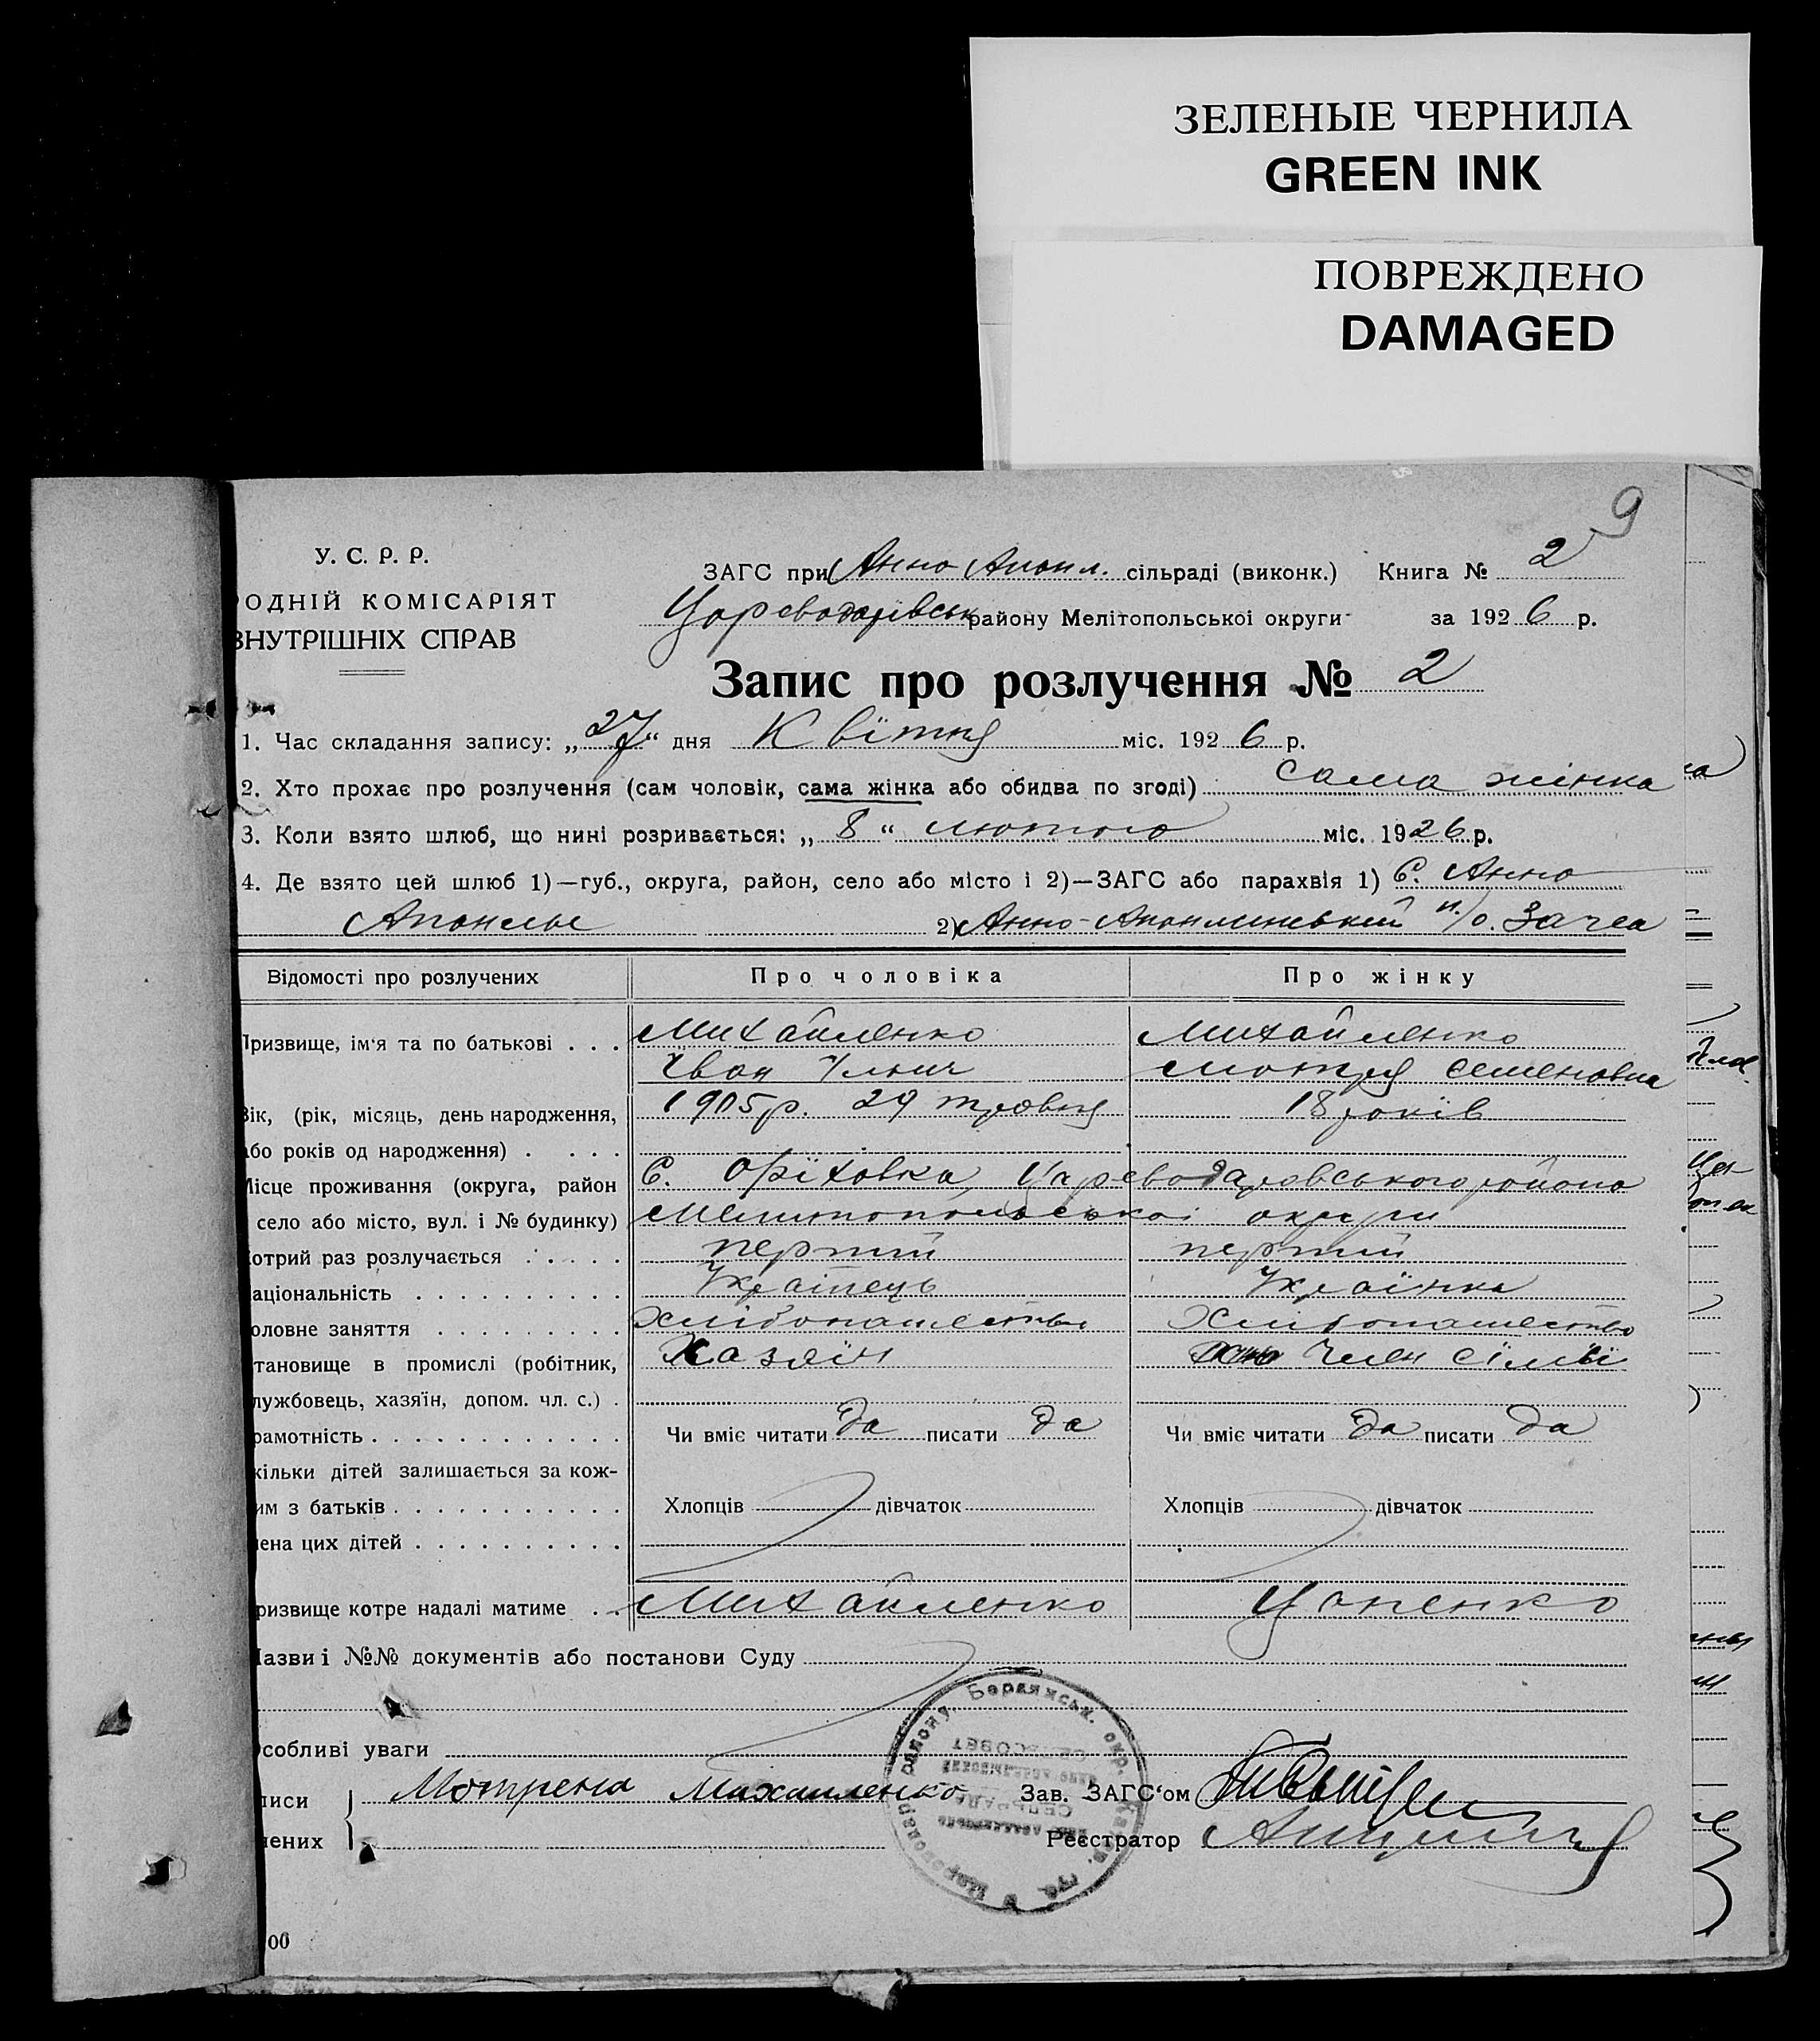 ЗЕЛЕНЫЕ ЧЕРНИЛА
GREEN INK
ПОВРЕЖДЕНО
DAMAGED
9
У. С. Р. Р.
РОДНІЙ КОМІСАРІЯТ
ВНУТРІШНІХ СПРАВ
ЗАГС при Анно Апонл. сільраді (виконк.) Книга № 2
району Мелітопольської округи за 1926 р.
Запис про розлучення № 2
1. Час складання запису: „27“ дня Квітня міс. 1926 р.
2. Хто прохає про розлучення (сам чоловік, сама жінка або обидва по згоді) сама жінка
3. Коли взято шлюб, що нині розривається: „8“ лютого міс. 1926 р.
4. Де взято цей шлюб 1)—губ., округа, район, село або місто і 2)—ЗАГС або парахвія 1) С. Анно
2) Анно-
Відомості про розлучених Про чоловіка Про жінку
Призвище, ім'я та по батькові . . . Михайленко Михайленко
Іван Ілліч Мотря Семеновна
Вік, (рік, місяць, день народження, 1905р. 29 травня 18 років
або років од народження) . . . .
Місце проживання (округа, район С. Оріховка, Цареводаровського району
село або місто, вул. і № будинку) Мелитопольскоі округи
Котрий раз розлучається . . . . . перший перший
Національність . . . . . . . . . . Українець Українка
Головне заняття . . . . . . . . . Хлібопашество Хлібопашество
становище в промислі (робітник, Хазяїн Член сімьї
службовець, хазяїн, допом. чл. с.) .
Грамотність . . . . . . . . . . . . Чи вміє читати да писати да Чи вміє читати да писати да
скільки дітей залишається за кож-
ним з батьків . . . . . . . . . . . Хлопців дівчаток Хлопців дівчаток
Імена цих дітей . . . . . . . . . .
Призвище котре надалі матиме . . Михайленко Цапенко
Назви і №№ документів або постанови Суду
Особливі уваги
писи Мотрена Михаиленко Зав. ЗАГС'ом
чених Реєстратор
району Бердянськ. окр.
СЕЛЬСОВЕТ
СЕЛЬРАДА
00